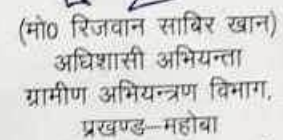 (मो0 रिजवान साबिर खान)
अधिशासी अभियन्ता
ग्रामीण अभियन्त्रण विभाग,
प्रखण्ड–महोबा